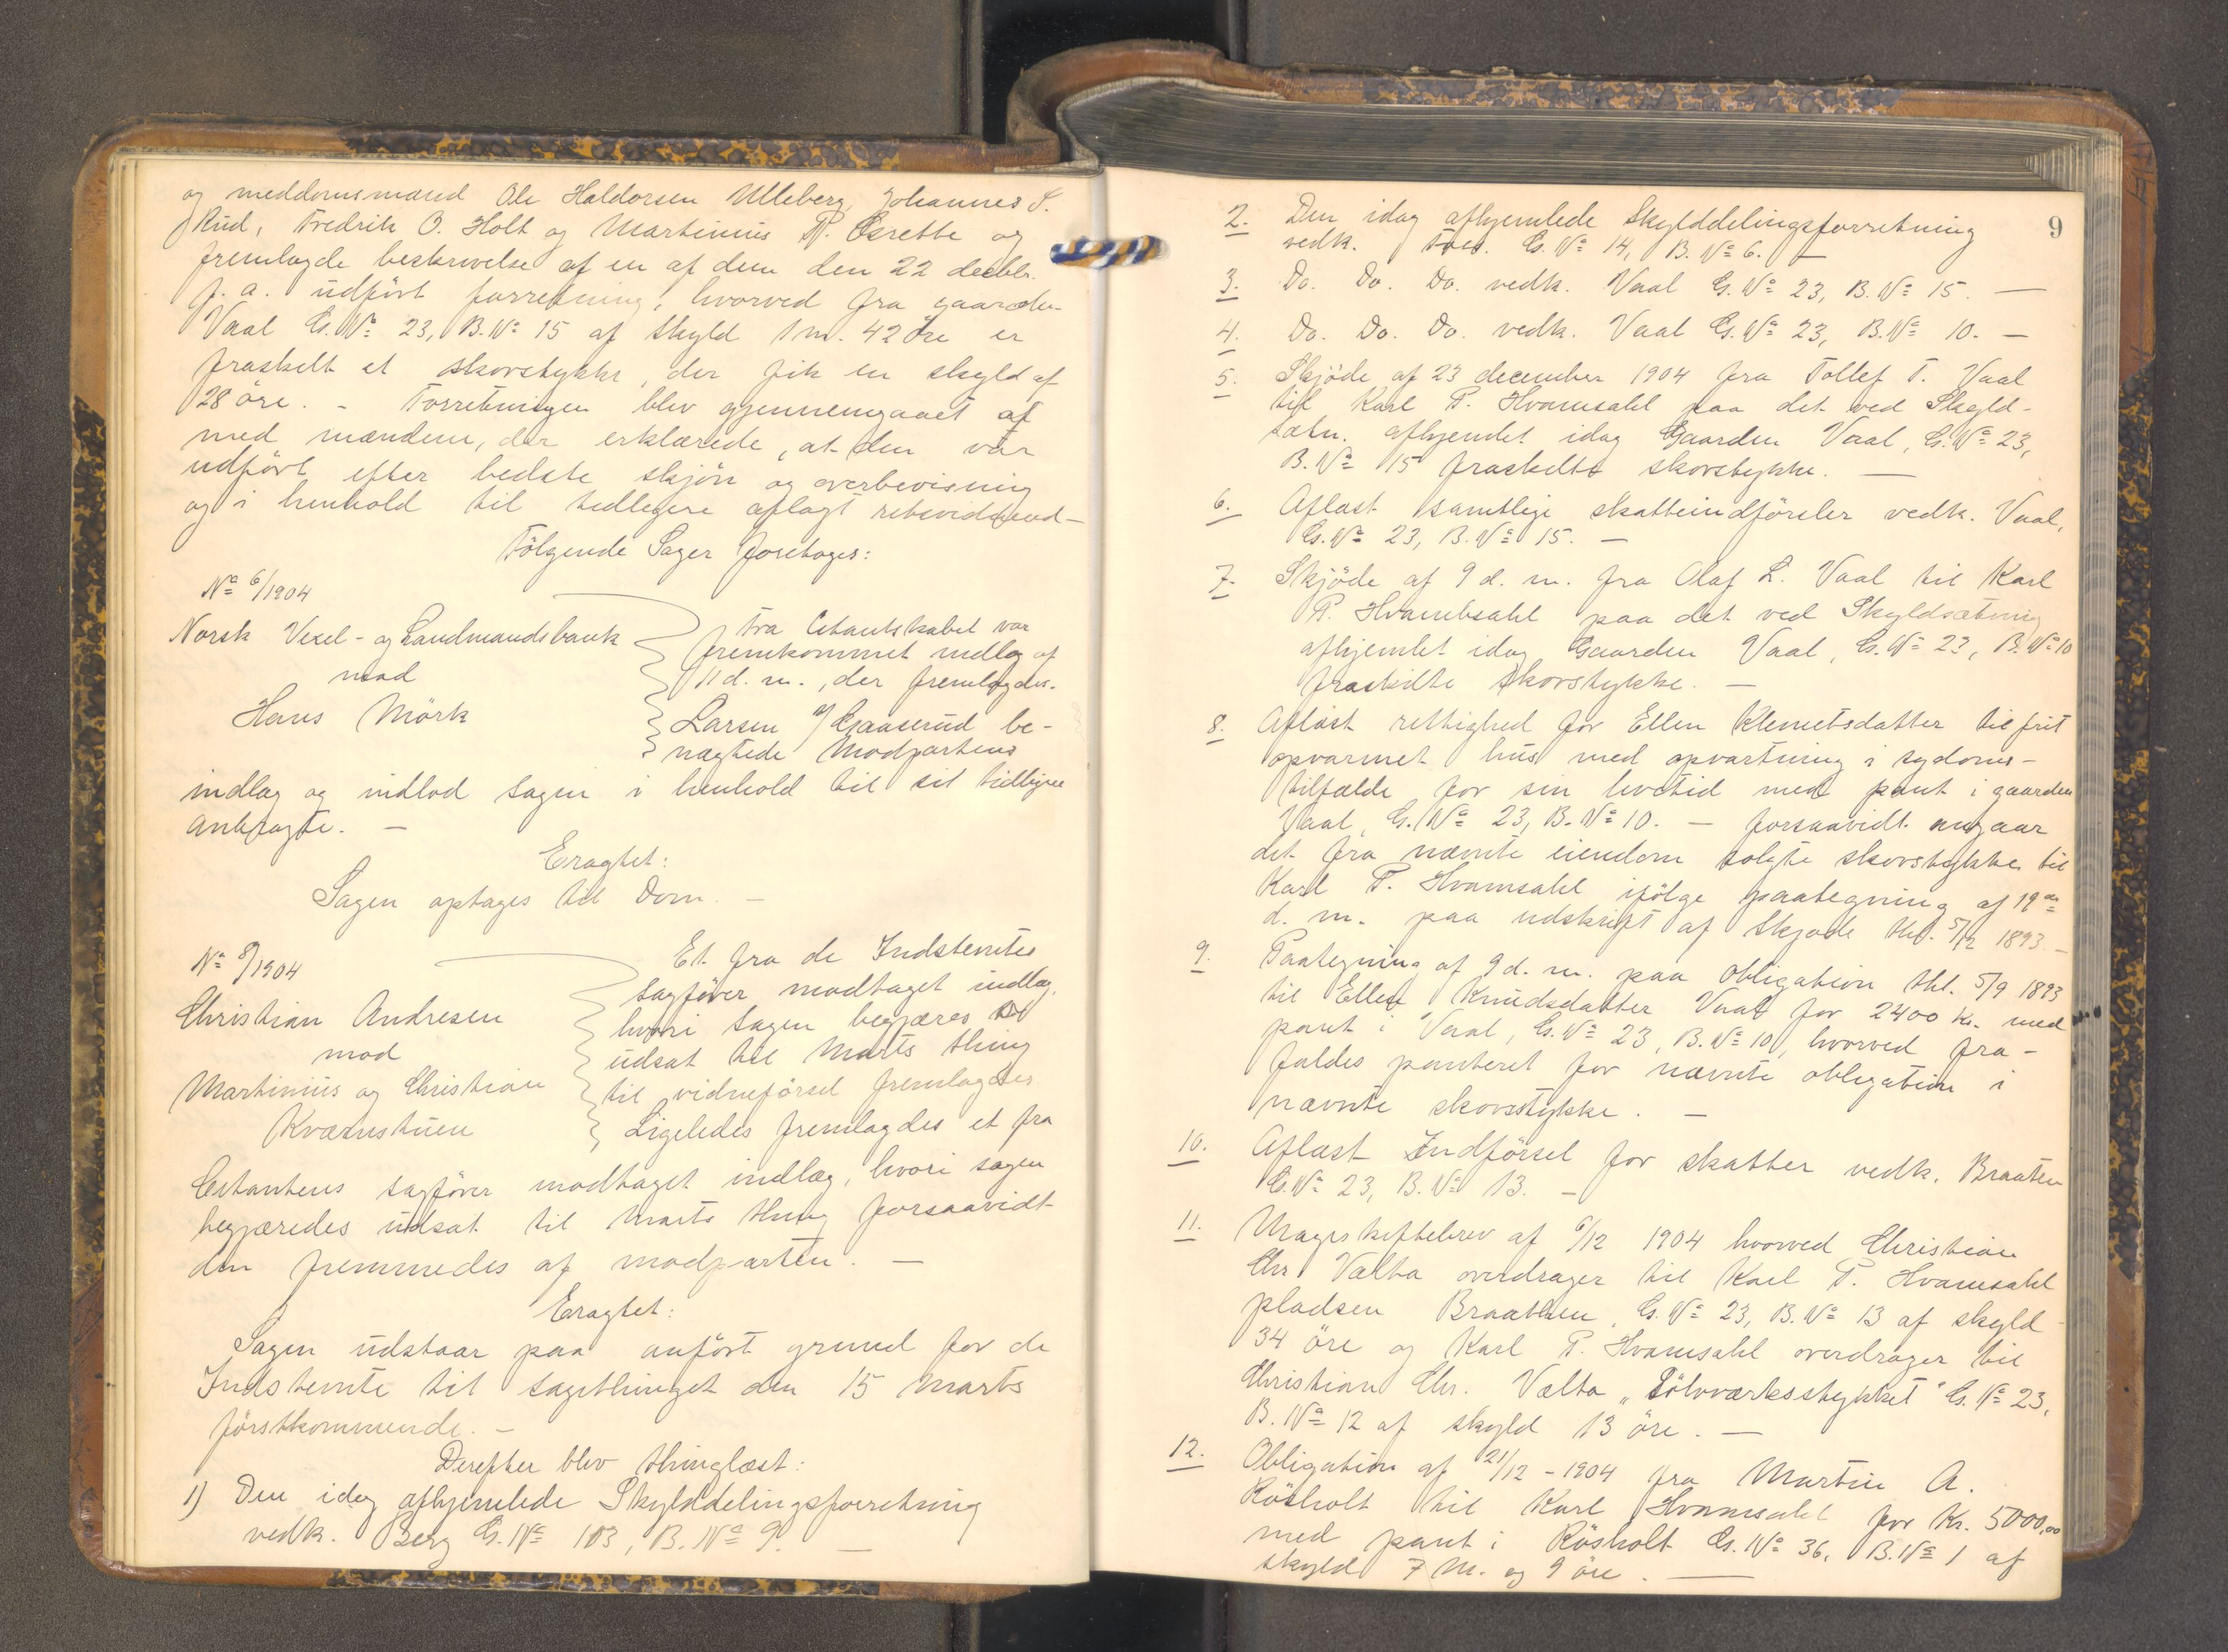 og meddomsmænd Ole Haldorsen Ulleberg, Johannes S.
Rud, Fredrik O. Holt og Martinius P. og
fremlagde beskrivelse af en af dem den 22 decbr.
f. a. udført forretning, hvorved fra gaarden
Vaal G. No 23, B. No 15 af skyld 1 m. 42 öre er
fraskelt et skovstykke, der fik en skyld af
28 öre. - Forretningen blev gjennemgaaet af
med mændene, der erklærede, at den var
udført efter bedste skjøn og overbevisning
og i henhold til tidligere aflagt
Følgende Sager foretoges:
No 6/1904
Norsk Vexel- og Landmandsbank
mod
Hans Mörk
Fra Citantskabet var
fremkommet indlæg af
11 d. m., der fremlagdes.
Larsen Gaaserud be-
nægtede Modpartens
indlæg og indlod sagen i henhold til sit tidligere
anbragte. -
Eragtet:
Sagen optages til Dom. -
No 8/1904
Christian Andresen
mod
Martinius og Christian
Kværnstuen
Et fra de Indstevntes
sagfører modtaget indlæg,
hvori sagen begjæres
udsat til Marts thing
til vidneførsel fremlagdes
Ligeledes fremlagdes et fra
Citantens sagfører modtaget indlæg, hvori sagen
begjæredes udsat til Marts thing forsaavidt
den fremmedes af modparten. -
Eragtet:
Sagen udstaar paa anført grund for de
Indstevnte til sagethinget den 15 Marts
førstkommende. -
Derefter blev thinglæst:
1) Den idag afhjemlede Skylddelingsforretning
vedk. Berg G. No 103, B. No 9. -
9
2. Den idag afhjemlede Skylddelingsforretning
vedk. G. No 14, B. No 6. -
3. Do. Do. Do. vedk. Vaal G. No 23, B. No 15. -
4. Do. Do. Do. vedk. Vaal G. No 23, B. No 10. -
5. Skjöde af 23 december 1904 fra Tollef T. Vaal
til Karl P. Hvamsahl paa det ved Skyld-
sætn. afhjemlet idag Gaarden Vaal, G. No 23,
B. No 15 fraskelte skovstykke. -
6. Aflæst samtlige skatteindförsler vedk. Vaal,
G. No 23, B. No 15. -
7. Skjöde af 9 d. m. fra Olaf L. Vaal til Karl
P. Hvambsahl paa det ved Skyldsætning
afhjemlet idag Gaarden Vaal, G. No 23, B. No 10
fraskilte skovstykke. -
8. Aflöst rettighed for Ellen Klemetsdatter til frit
opvarmet hus med opvartning i sygdoms-
tilfælde for sin livstid med pant i gaarden
Vaal, G. No 23, B. No 10. - forsaavidt angaar
det fra nævnte eiendom solgte skovstykke til
Karl P. Hvamsahl ifölge paategning af 19de
d. m. paa udskrift af Skjøde thl. 5/12 1893. -
9. Paategning af 9 d. m. paa obligation thl. 5/9 1893
til Ellen Knudsdatter Vaal for 2400 kr. med
pant i Vaal, G. No 23, B. No 10, hvorved fra-
faldes panteret for nævnte obligation i
nævnte skovstykke. -
10. Aflæst Indförsel for skatter vedk. Braaten
G. No 23, B. No 13. -
11. Mageskiftebrev af 6/12 1904 hvorved Christian
Chr. Valta overdrager til Karl P. Hvamsahl
pladsen Braathen, G. No 23, B. No 13 af skyld
34 öre og Karl P. Hvamsahl overdrager til
Christian Chr. Valta „Sölvværksstykket" G. No 23,
B. No 12 af skyld 13 öre. -
12. Obligation af 21/12 - 1904 fra Martin A.
Rösholt til Karl Hvamsahl for Kr. 5000,00
med pant i Rösholt G. No 36, B. No 1 af
skyld 7 M. og 9 öre. -